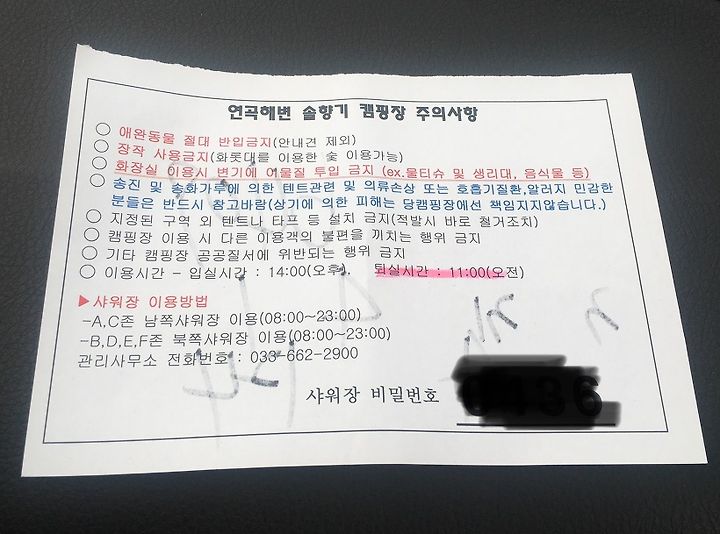 연곡해변 솔향기 캠핑장 주의사항
○ 애완동물 절대 반입금지(안내견 제외)
○ 장작 사용금지(화롯대를 이용한 숯 이용가능)
○ 화장실 이용시 변기에 이물질 투입 금지 (ex.물티슈 및 생리대, 음식물 등)
○ 송진 및 송화가루에 의한 텐트관련 및 의류손상 또는 호흡기질환,알러지 민감한
분들은 반드시 참고바람(상기에 의한 피해는 당캠핑장에선 책임지지않습니다.)
○ 지정된 구역 외 텐트나 타프 등 설치 금지(적발시 바로 철거조치)
○ 캠핑장 이용 시 다른 이용객의 불편을 끼치는 행위 금지
○ 기타 캠핑장 공공질서에 위반되는 행위 금지
○ 이용시간 - 입실시간 : 14:00(오후), 퇴실시간 : 11:00(오전)
▶샤워장 이용방법
-A,C존 남쪽샤워장 이용(08:00~23:00)
-B,D,E,F존 북쪽샤워장 이용(08:00~23:00)
관리사무소 전화번호 : 033-662-2900
샤워장 비밀번호